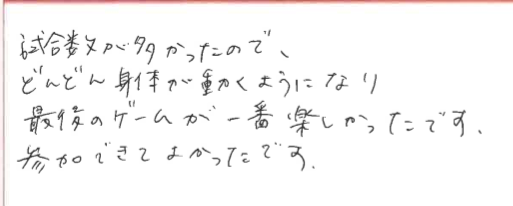 試合数が多かったので、
どんどん身体が動くようになり
最後のゲームが一番楽しかったです.
参加できてよかったです.